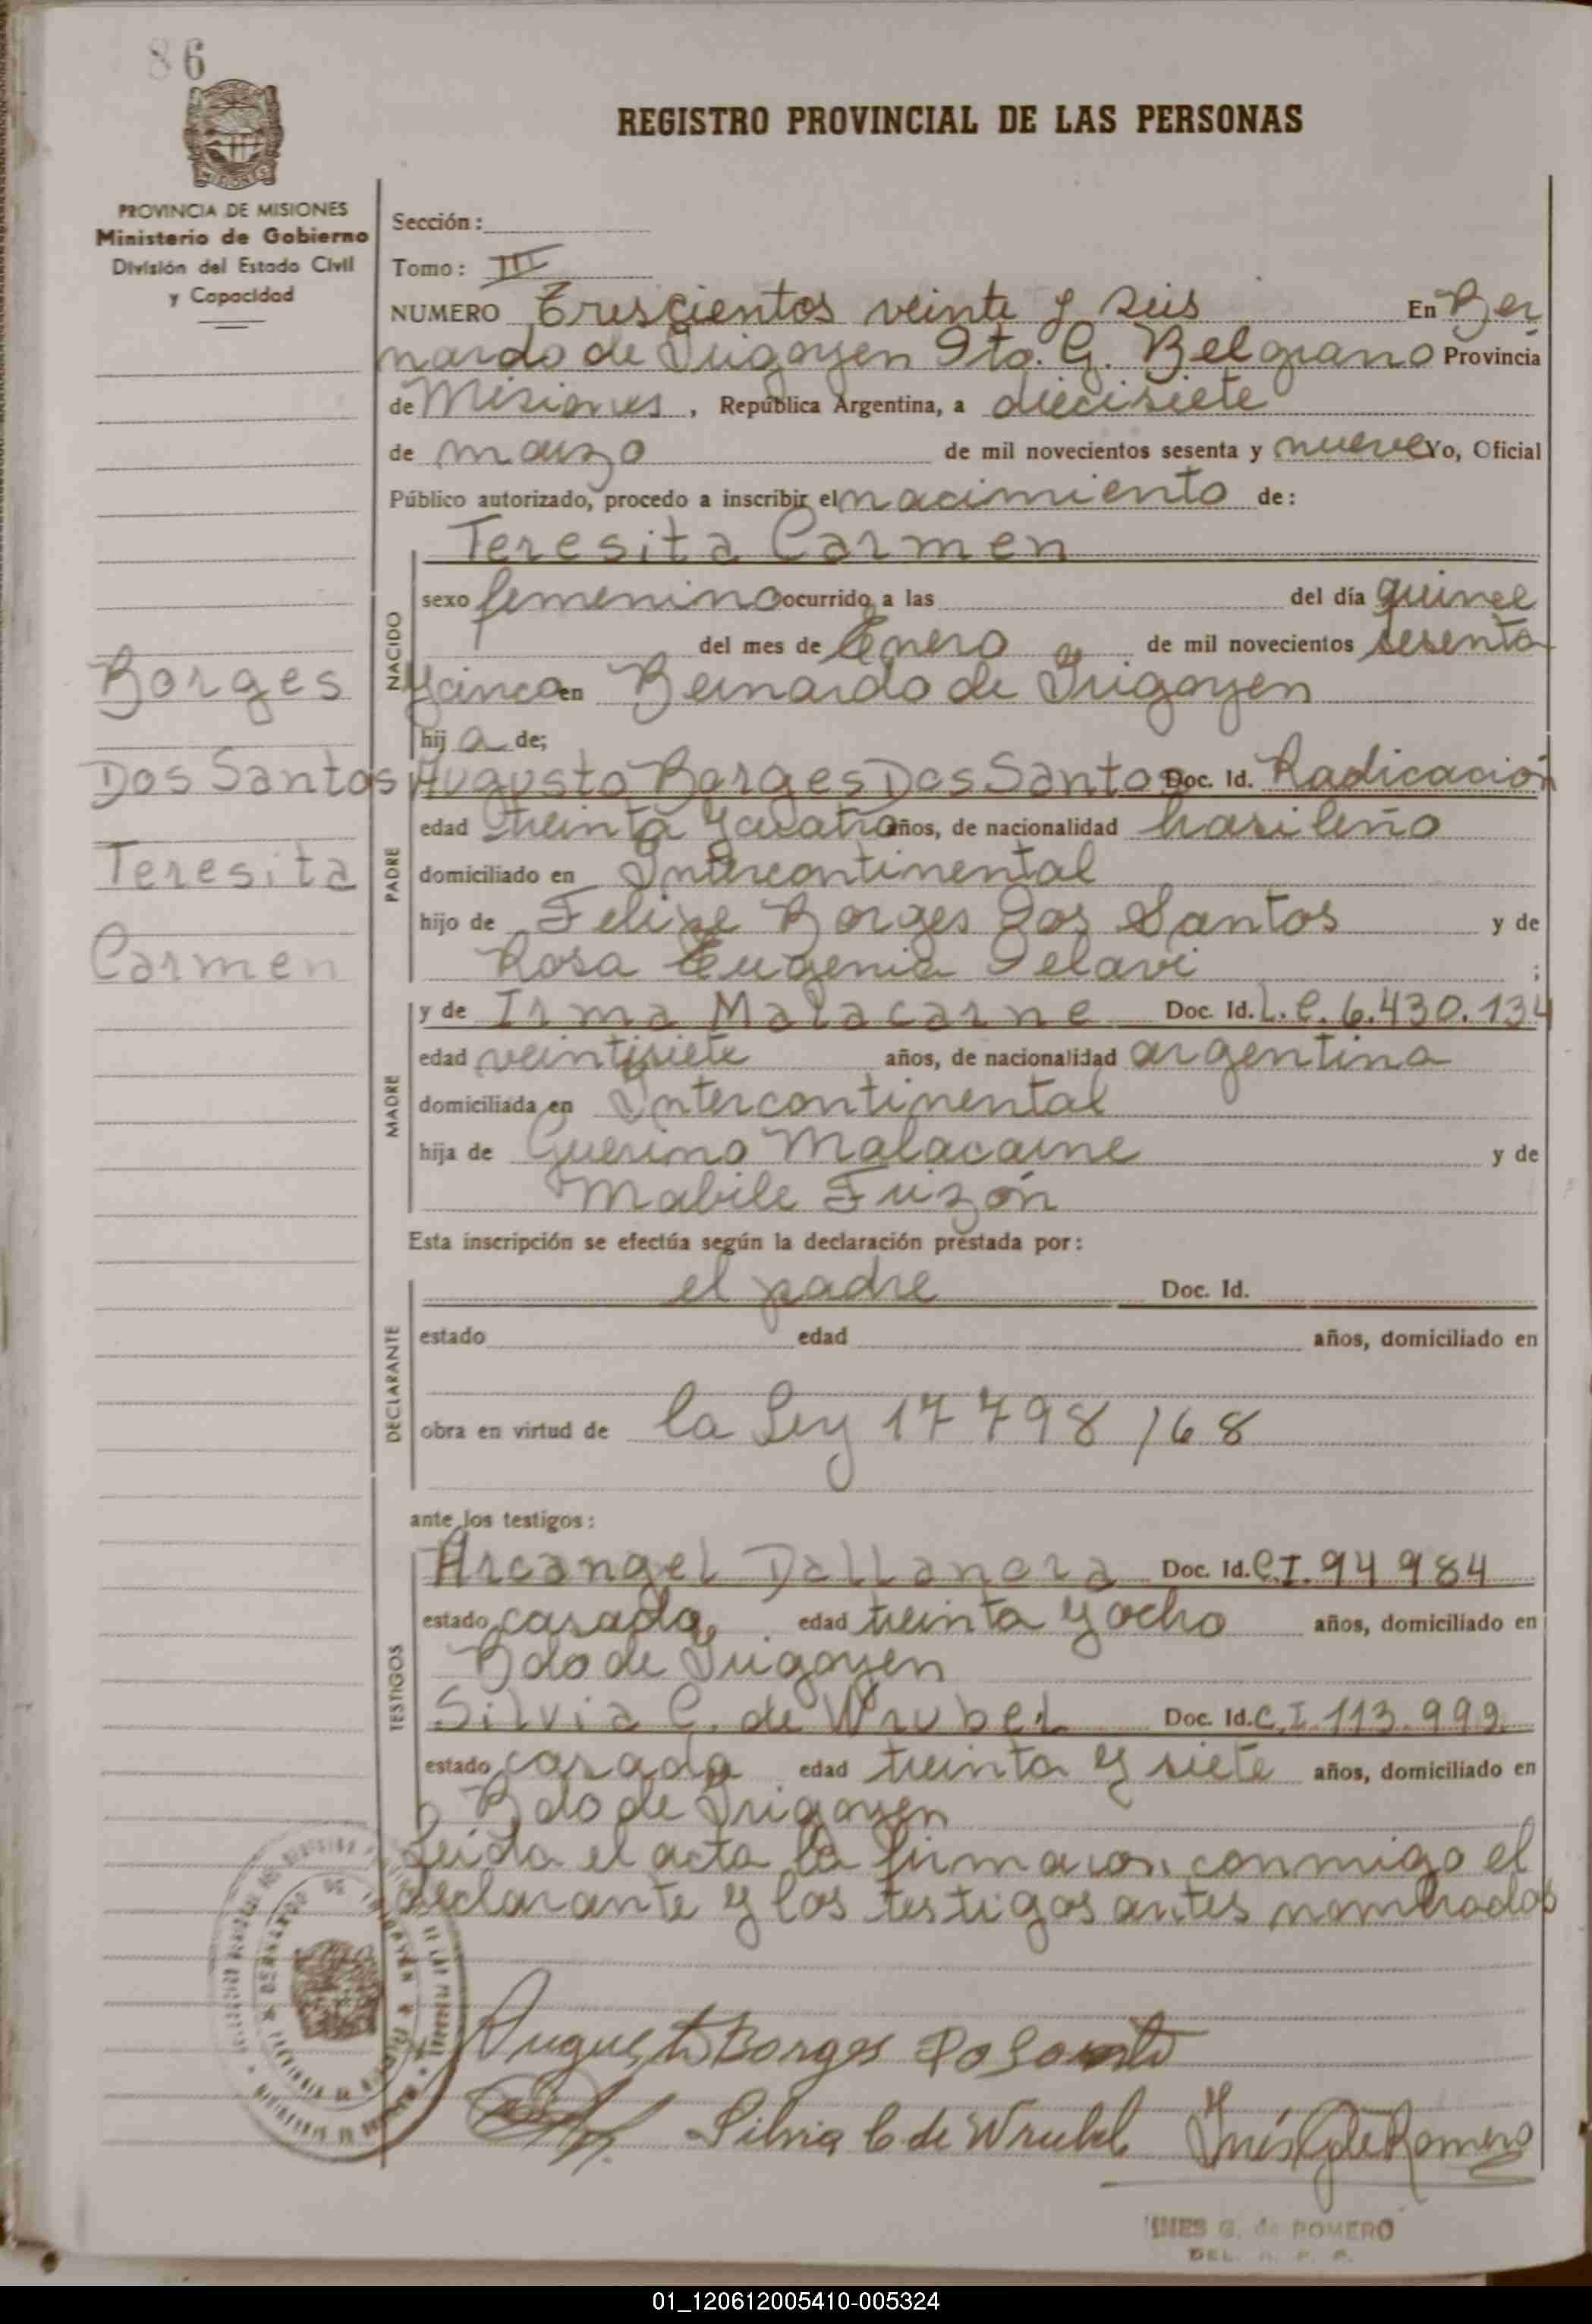 86
REGISTRO PROVINCIAL DE LAS PERSONAS
MISIONES
PROVINCIA DE MISIONES
Ministerio de Gobierno
División del Estado Civil
y Capacidad
Sección:
Tomo: III
NUMERO Trescientos veinte y seis En Ber
nardo de Irigoyen Dto. G. Belgrano Provincia
de Misiones, República Argentina, a diecisiete
de marzo de mil novecientos sesenta y nueve Yo, Oficial
Público autorizado, procedo a inscribir el nacimiento de:
Teresita Carmen
NACIDO
sexo femenino ocurrido a las del día quince
del mes de Enero de mil novecientos sesenta
y cinco en Bernardo de Irigoyen
hij a de;
Borges
Dos Santos
Teresita
Carmen
PADRE
Augusto Borges Dos Santos Doc. Id. Radicación
edad treinta y cuatro años, de nacionalidad brasileño
domiciliado en Intercontinental
hijo de Felipe Borges Dos Santos y de
Rosa Eugenia Delavi ;
MADRE
y de Irma Malacarne Doc. Id. L.C. 6.430.134
edad veintisiete años, de nacionalidad argentina
domiciliada en Intercontinental
hija de Guerino Malacarne y de
Mabile Frizón
Esta inscripción se efectúa según la declaración prestada por:
DECLARANTE
el padre Doc. Id.
estado edad años, domiciliado en
obra en virtud de la Ley 17798/68
ante los testigos:
TESTIGOS
Arcangel Dallanora Doc. Id. C.I. 94984
estado casado edad treinta y ocho años, domiciliado en
Bdo de Irigoyen
Silvia C. de Wrubel Doc. Id. C.I. 113.999
estado casada edad treinta y siete años, domiciliado en
Bdo de Irigoyen
Leida el acta la firmaron conmigo el
declarante y los testigos antes nombrados
Augusto Borges Do Santo
Silvia C de Wrubel Inés G de Romero
INES G. de ROMERO
DEL. R. P. P.
01_120612005410-005324